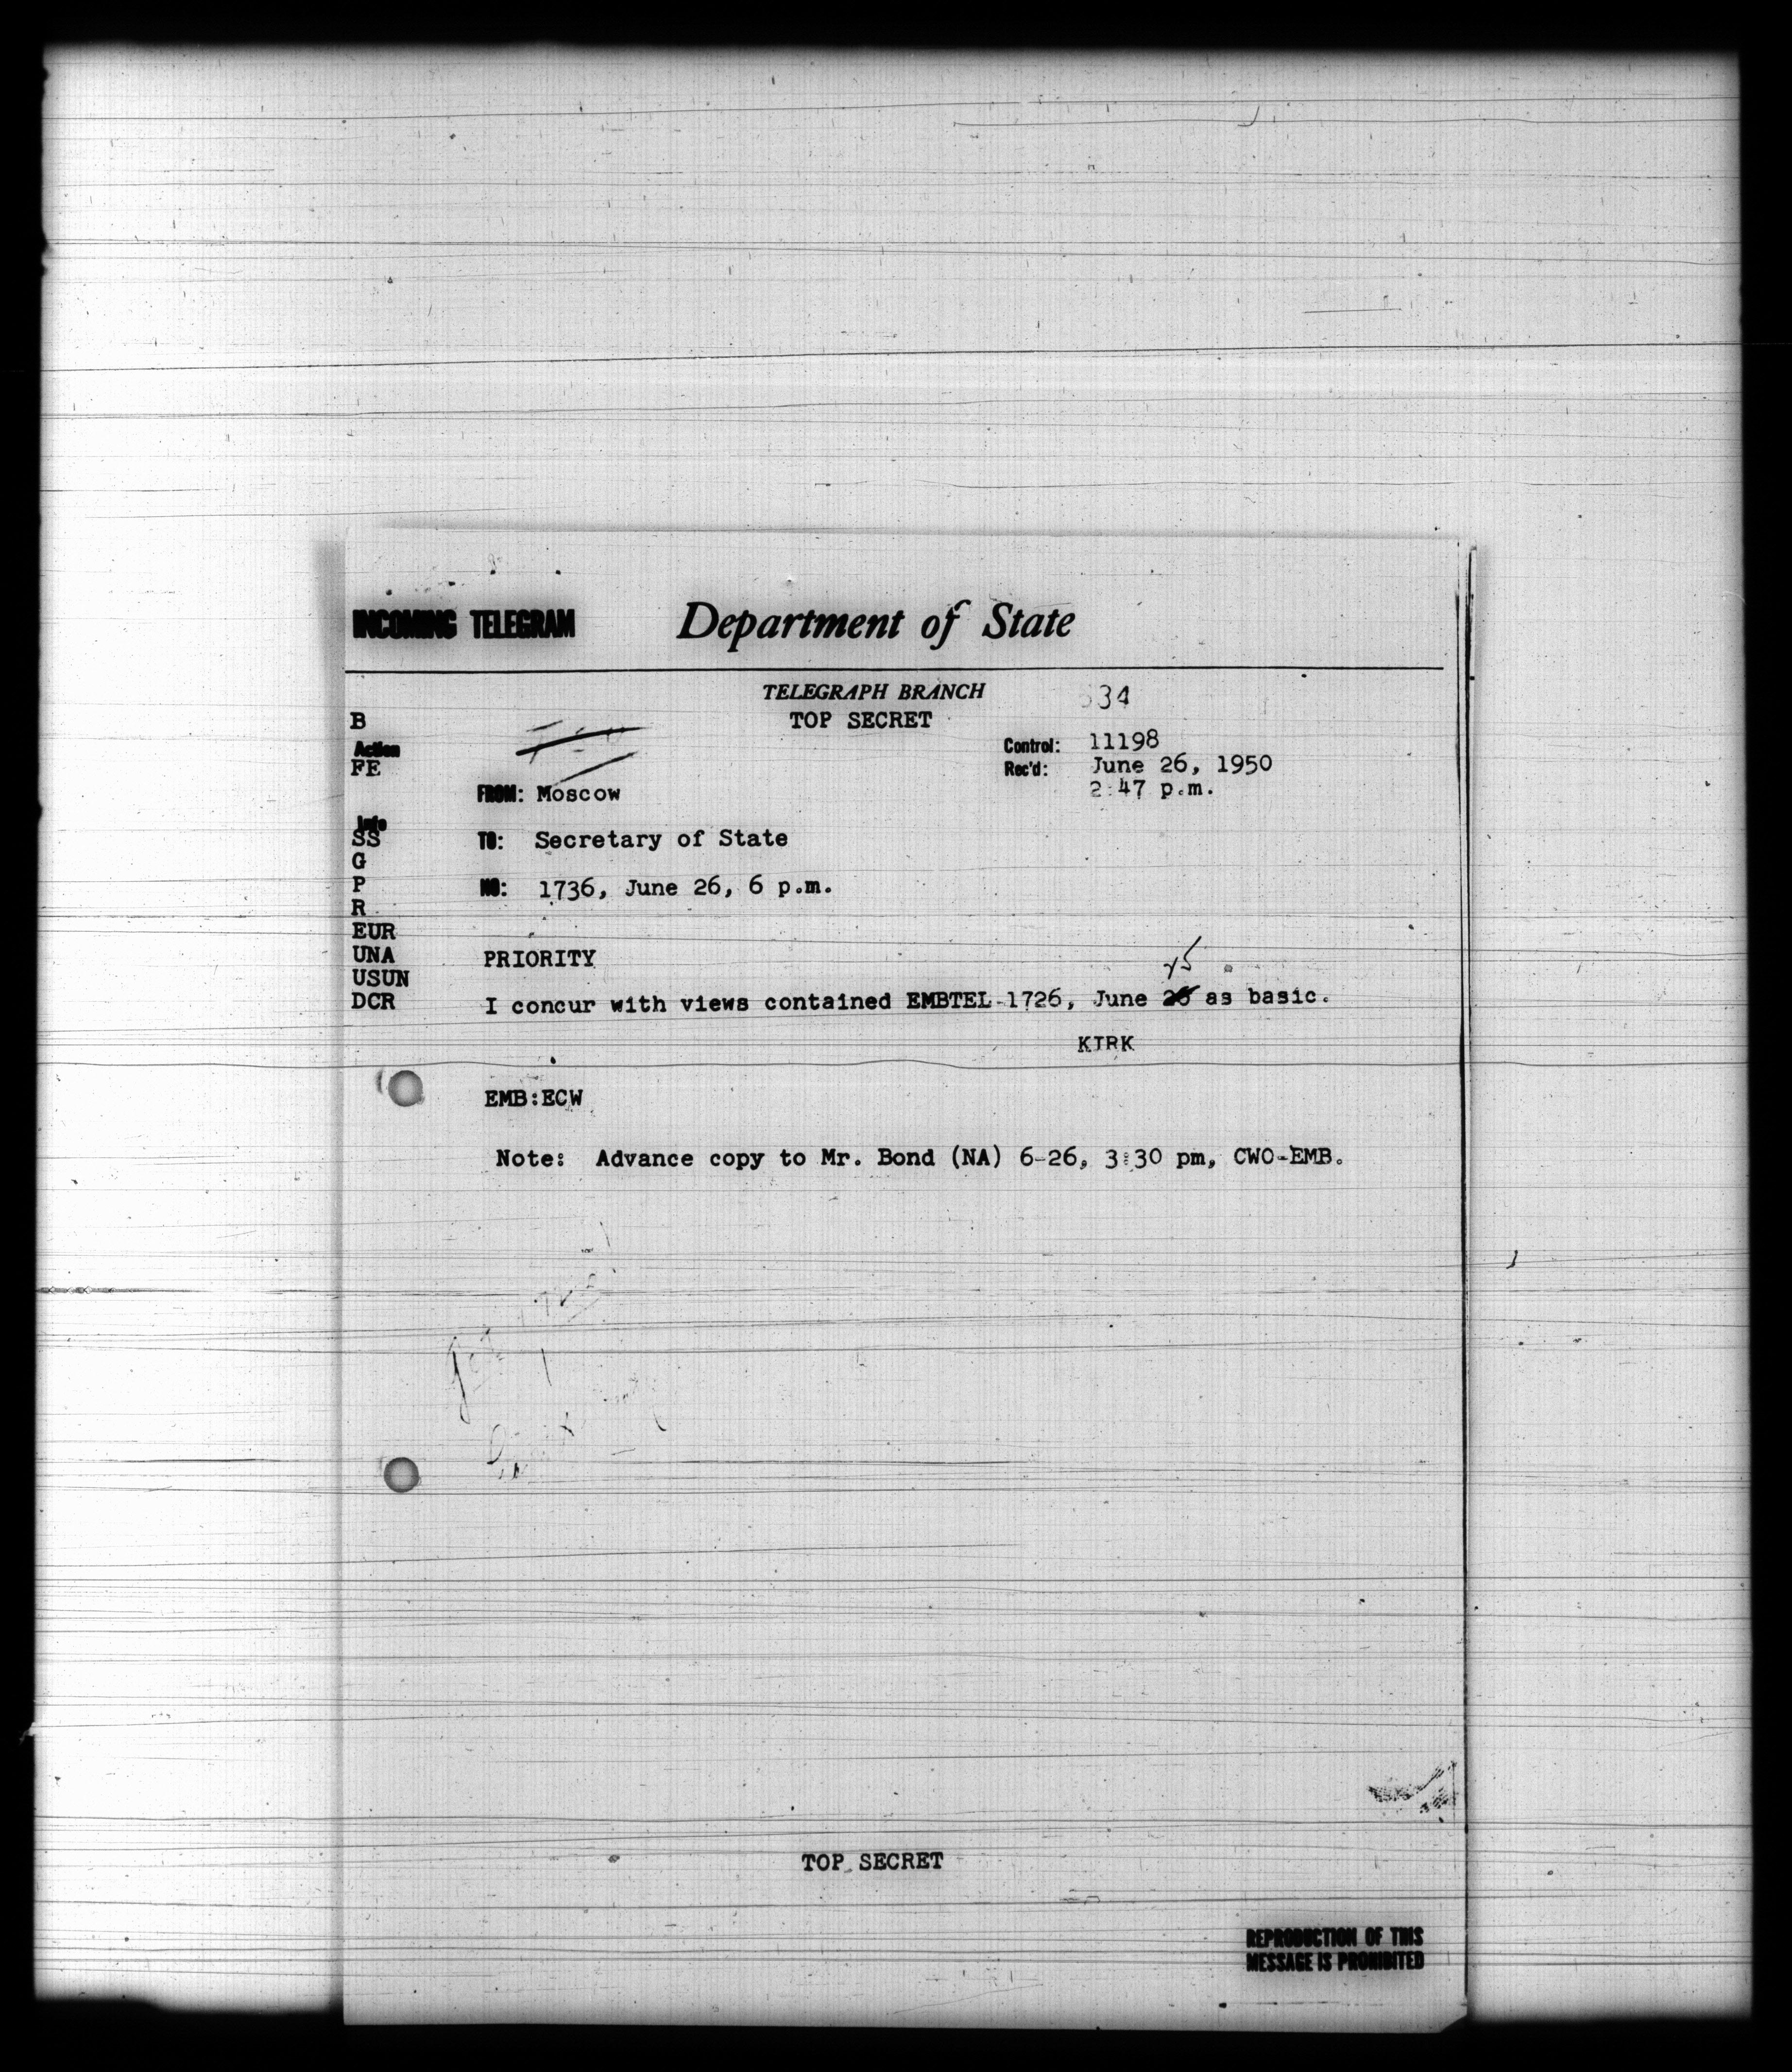 INCOMING TELEGRAM Department of State
TELEGRAPH BRANCH 34
B TOP SECRET
Action Control: 11198
FE Rec'd: June 26, 1950
FROM: Moscow 2:47 p.m.
Info
SS TO: Secretary of State
G
P NO: 1736, June 26, 6 p.m.
R
EUR
UNA PRIORITY 25
USUN
DCR I concur with views contained EMBTEL 1726, June 26 as basic.
KIRK
EMB:ECW
Note: Advance copy to Mr. Bond (NA) 6-26, 3:30 pm, CWO-EMB.
TOP SECRET
REPRODUCTION OF THIS
MESSAGE IS PROHIBITED